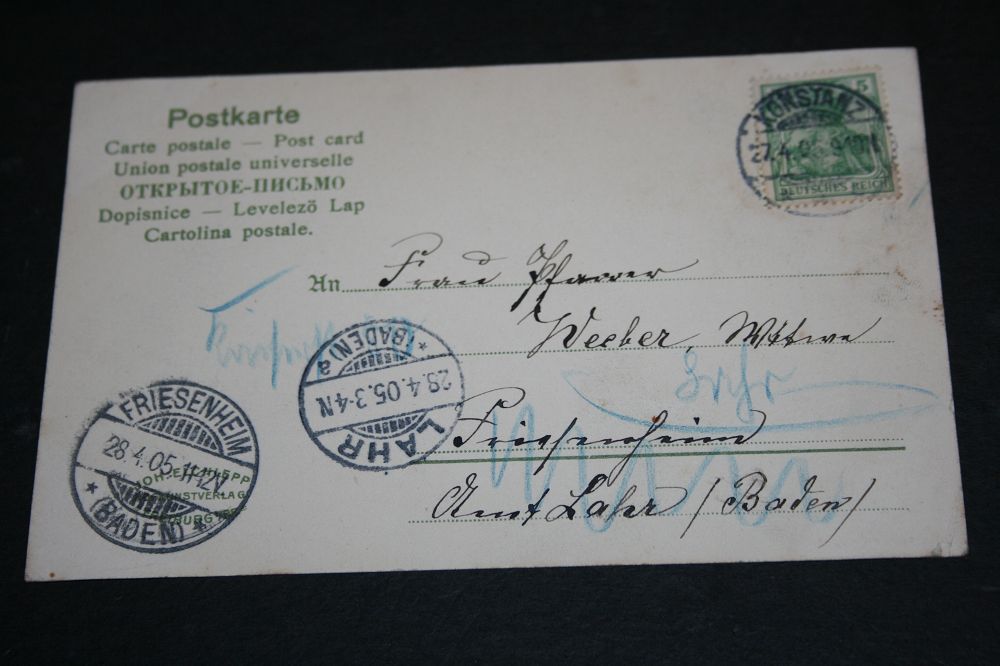 Postkarte
Carte postale — Post card
Union postale universelle
ОТКРЫТОЕ-ПИСЬМО
Dopisnice — Levelezö Lap
Cartolina postale.
5
DEUTSCHES REICH
KONSTANZ
An Frau Pfarrer
Weeber, Wittwe
Lahr
Friesenheim
Amt Lahr (Baden)
LAHR
(BADEN) a
28.4.05.3-4N
FRIESENHEIM
28.4.05.11-12V
(BADEN)
KUNSTVERLAG